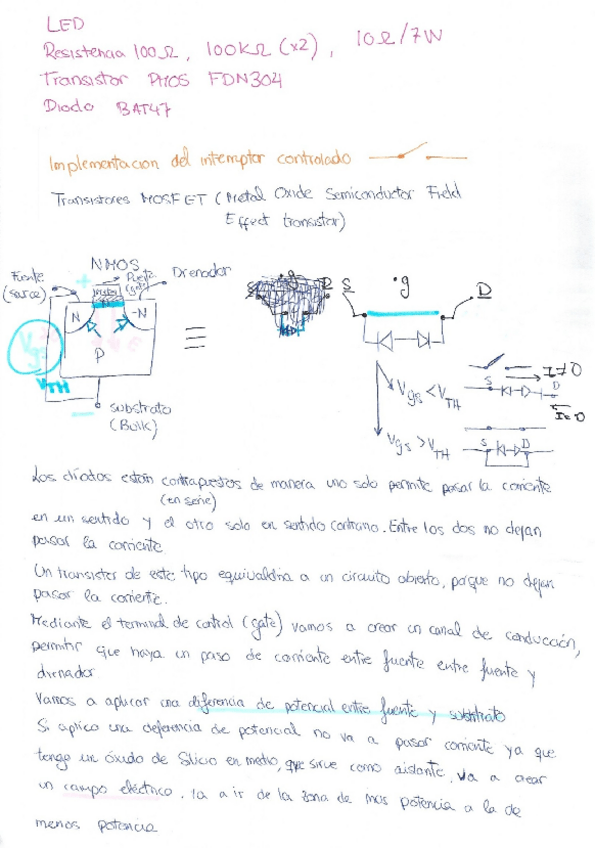 LED
Resistencia 100Ω, 100KΩ (x2), 10Ω/7W
Transistor PMOS FDN304
Diodo BAT47
Implementacion del interruptor controlado
Transistores MOSFET (Metal Oxide Semiconductor Field
Effect transistor)
NMOS
Fuente
(source)
Puerta
(gate)
Drenador
N
-N
P
Vgs
VTH
substrato
(Bulk)
S
g
D
S
g
D
Vgs < VTH
S
D
I≠0
I=0
Vgs > VTH
S
D
Los diodos están contrapuestos de manera uno solo permite pasar la corriente
(en serie)
en un sentido y el otro solo en sentido contrario. Entre los dos no dejan
pasar la corriente
Un transistor de este tipo equivaldria a un circuito abierto, porque no dejan
pasar la corriente.
Mediante el terminal de control (gate) vamos a crear un canal de conducción,
permitir que haya un paso de corriente entre fuente entre fuente y
drenador
Vamos a aplicar una diferencia de potencial entre fuente y substrato
Si aplico una deferencia de potencial no va a pasar corriente ya que
tengo un óxido de Silicio en medio, que sirve como aislante. Va a crear
un campo eléctrico. Va a ir de la zona de mas potencia a la de
menos potencia